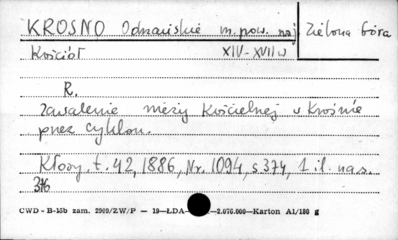 KROSNO Odrzańskie m. pow. naj Zielona Góra
Kościół XIV-XVII w
R.
Zawalenie wieży Kościelnej w Krośnie
przez cyklon.
Kłosy. t. 42, 1886, Nr. 1094, s 374, 1 il. na s.
376
CWD - B-15b zam. 2909/ZW/P — 19—ŁDA- —2.076.000—Karton A1/180 g